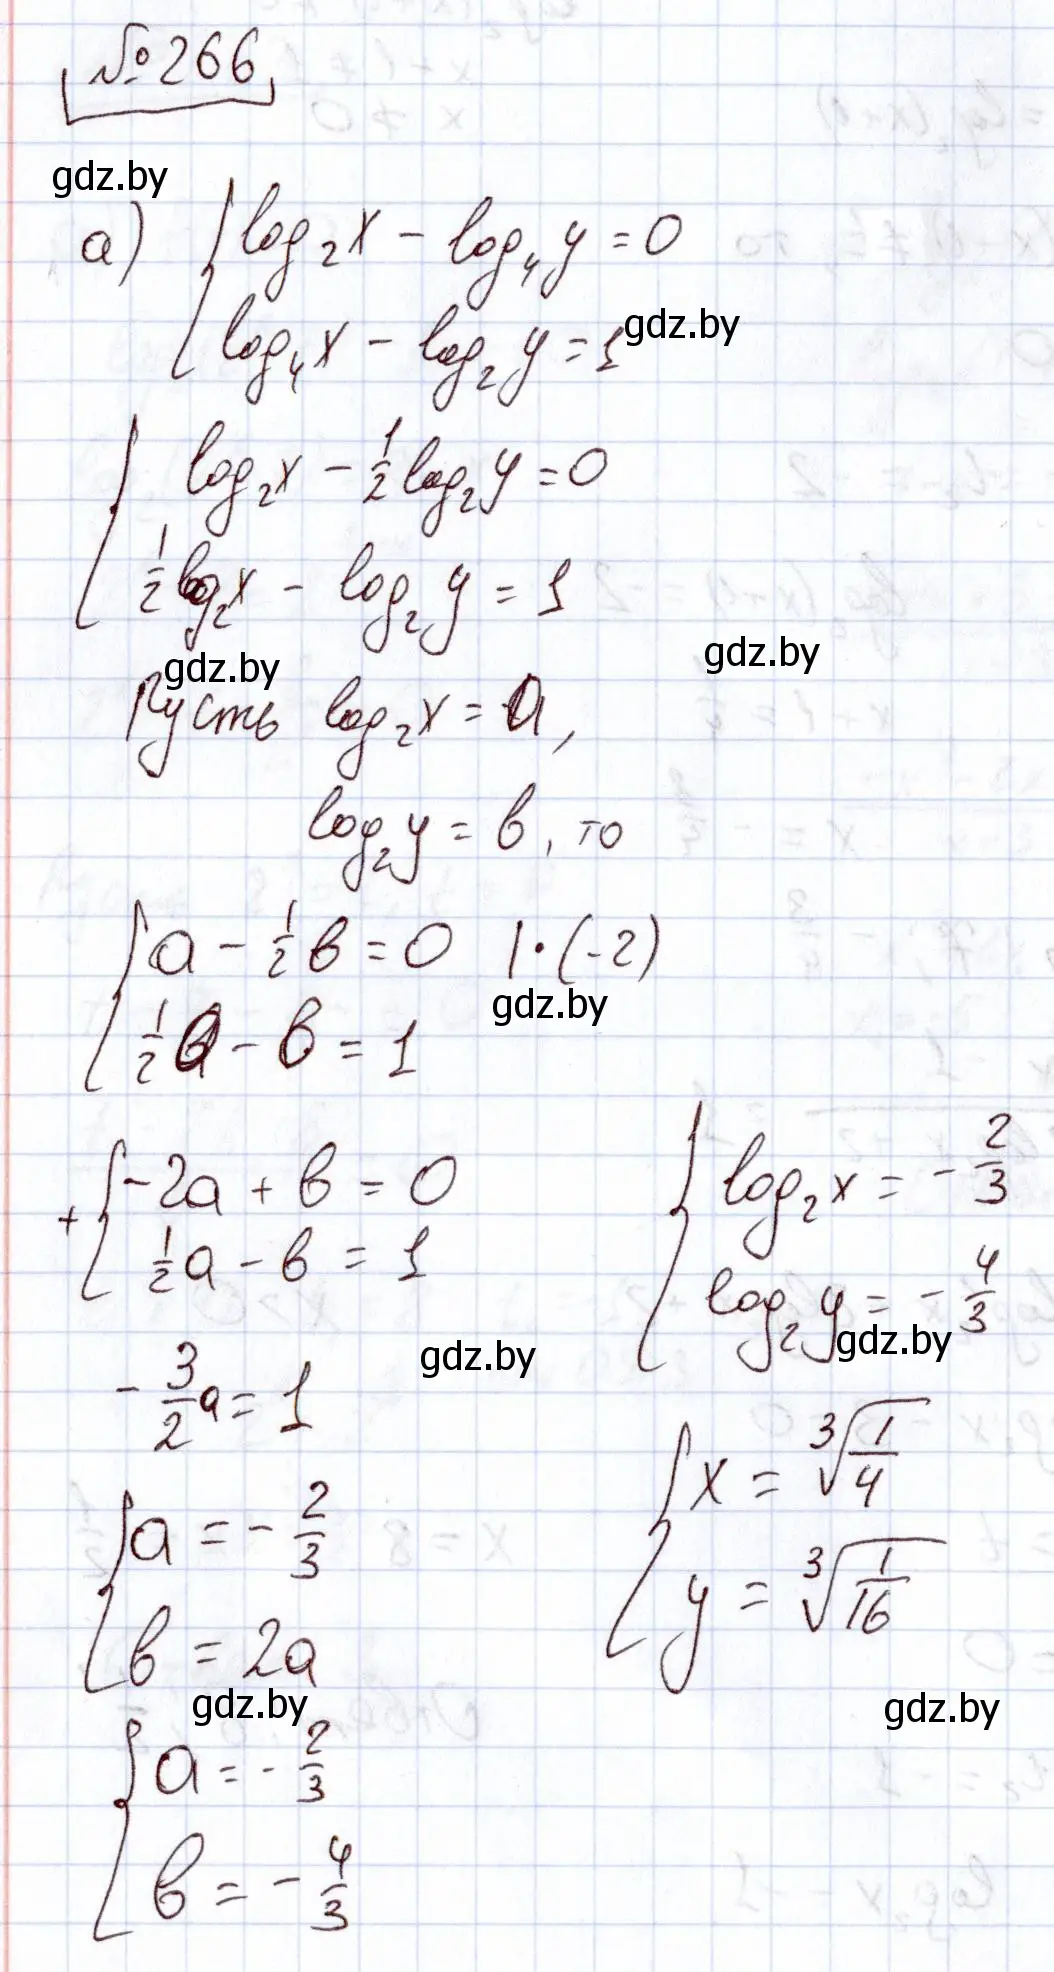 №266
gdz.by
а) { log₂x - log₄y = 0
log₄x - log₂y = 1
gdz.by
{ log₂x - 1/2 log₂y = 0
1/2 log₂x - log₂y = 1
gdz.by
gdz.by
Пусть log₂x = a,
log₂y = b, то
{ a - 1/2 b = 0 | · (-2)
gdz.by
1/2 a - b = 1
+ { -2a + b = 0
1/2 a - b = 1
gdz.by
-3/2 a = 1
{ a = -2/3
b = 2a
gdz.by
{ a = -2/3
b = -4/3
{ log₂x = -2/3
log₂y = -4/3
gdz.by
{ x = ∛(1/4)
y = ∛(1/16)
gdz.by